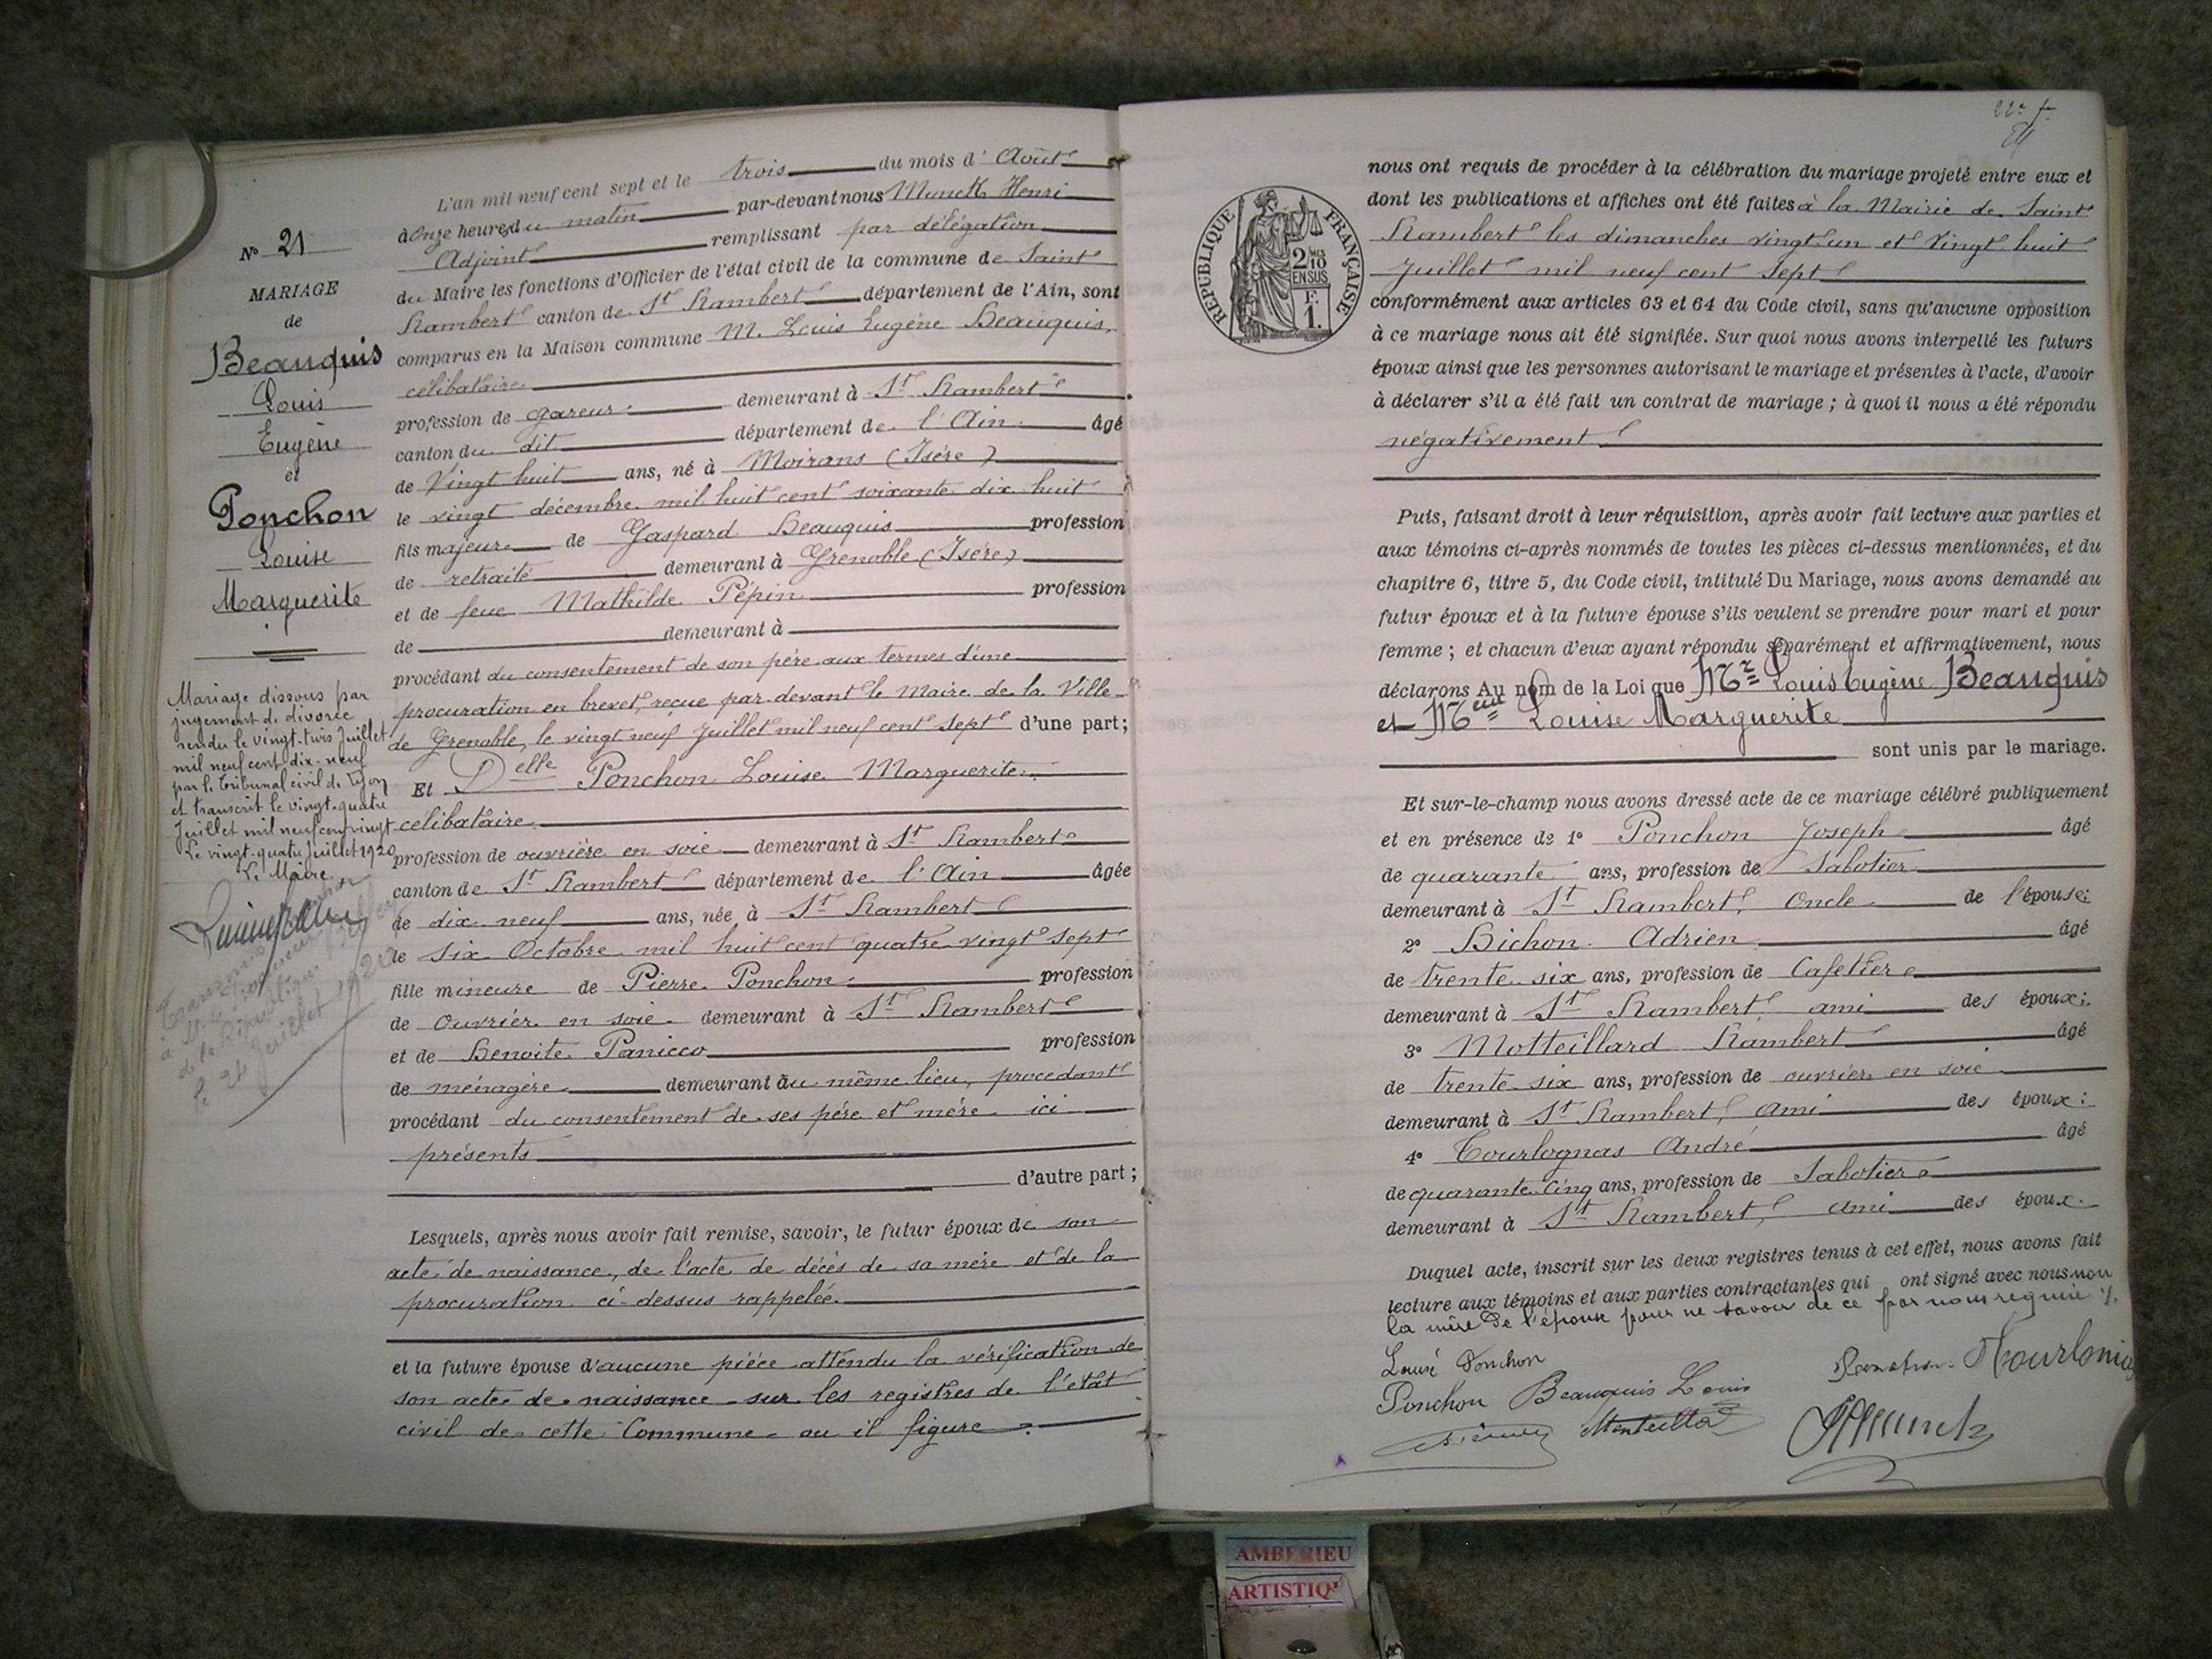 N° 21
MARIAGE
de
Beauquis
Louis
Eugène
et
Ponchon
Louise
Marguerite
Mariage dissous par
jugement de divorce
rendu le vingt-trois Juillet
mil neuf cent dix-neuf
par le Tribunal civil de Lyon
et transcrit le vingt-quatre
Juillet mil neuf cent vingt
Le vingt-quatre Juillet 1920
Le Maire
de la République
le 24 Juillet 1920
L'an mil neuf cent sept et le trois du mois d'Août
à Onze heures du matin par-devant nous Munck Henri
Adjoint remplissant par délégation
du Maire les fonctions d'Officier de l'état civil de la commune de Saint
Rambert canton de St Rambert département de l'Ain, sont
comparus en la Maison commune M. Louis Eugène Beauquis,
célibataire
profession de gareur demeurant à St Rambert
canton du dit département de l'Ain âgé
de Vingt huit ans, né à Moirans (Isère)
le vingt décembre mil huit cent soixante dix huit
fils majeur de Gaspard Beauquis profession
de retraité demeurant à Grenoble (Isère)
et de feue Mathilde Pépin profession
de demeurant à
procédant du consentement de son père aux termes d'une
procuration en brevet, reçue par devant le Maire de la Ville
de Grenoble, le vingt neuf Juillet mil neuf cent sept d'une part;
Et Delle Ponchon Louise Marguerite
célibataire
profession de ouvrière en soie demeurant à St Rambert
canton de St Rambert département de l'Ain âgée
de dix-neuf ans, née à St Rambert
le six Octobre mil huit cent quatre vingt sept
fille mineure de Pierre Ponchon profession
de ouvrier en soie demeurant à St Rambert
et de Benoite Panicco profession
de ménagère demeurant au même lieu, procédant
procédant du consentement de ses père et mère ici
présents
d'autre part;
Lesquels, après nous avoir fait remise, savoir, le futur époux de son
acte de naissance, de l'acte de décès de sa mère et de la
procuration ci-dessus rappelée.
et la future épouse d'aucune pièce attendu la vérification de
son acte de naissance sur les registres de l'état
civil de cette Commune ou il figure.
22e f.
RÉPUBLIQUE FRANÇAISE
2 MES
10
EN SUS
F.
1.
nous ont requis de procéder à la célébration du mariage projeté entre eux et
dont les publications et affiches ont été faites à la Mairie de Saint
Rambert les dimanches vingt-un et vingt huit
Juillet mil neuf cent sept
conformément aux articles 63 et 64 du Code civil, sans qu'aucune opposition
à ce mariage nous ait été signifiée. Sur quoi nous avons interpellé les futurs
époux ainsi que les personnes autorisant le mariage et présentes à l'acte, d'avoir
à déclarer s'il a été fait un contrat de mariage ; à quoi il nous a été répondu
négativement
Puis, faisant droit à leur réquisition, après avoir fait lecture aux parties et
aux témoins ci-après nommés de toutes les pièces ci-dessus mentionnées, et du
chapitre 6, titre 5, du Code civil, intitulé Du Mariage, nous avons demandé au
futur époux et à la future épouse s'ils veulent se prendre pour mari et pour
femme ; et chacun d'eux ayant répondu séparément et affirmativement, nous
déclarons Au nom de la Loi que Mr Louis Eugène Beauquis
et Melle Louise Marguerite
sont unis par le mariage.
Et sur-le-champ nous avons dressé acte de ce mariage célébré publiquement
et en présence de 1° Ponchon Joseph âgé
de quarante ans, profession de Sabotier
demeurant à St Rambert, Oncle de l'épouse;
2° Bichon Adrien âgé
de trente-six ans, profession de Cafetier
demeurant à St Rambert ami des époux;
3° Motteillard Rambert âgé
de trente-six ans, profession de ouvrier en soie
demeurant à St Rambert, ami des époux;
4° Tourlognas André âgé
de quarante-cinq ans, profession de Sabotier
demeurant à St Rambert, ami des époux.
Duquel acte, inscrit sur les deux registres tenus à cet effet, nous avons fait
lecture aux témoins et aux parties contractantes qui ont signé avec nous non
la mère de l'épouse pour ne savoir de ce par nous requise
Ponchon
Ponchon Beauquis Louis
HMunck
AMBERIEU
ARTISTIQ